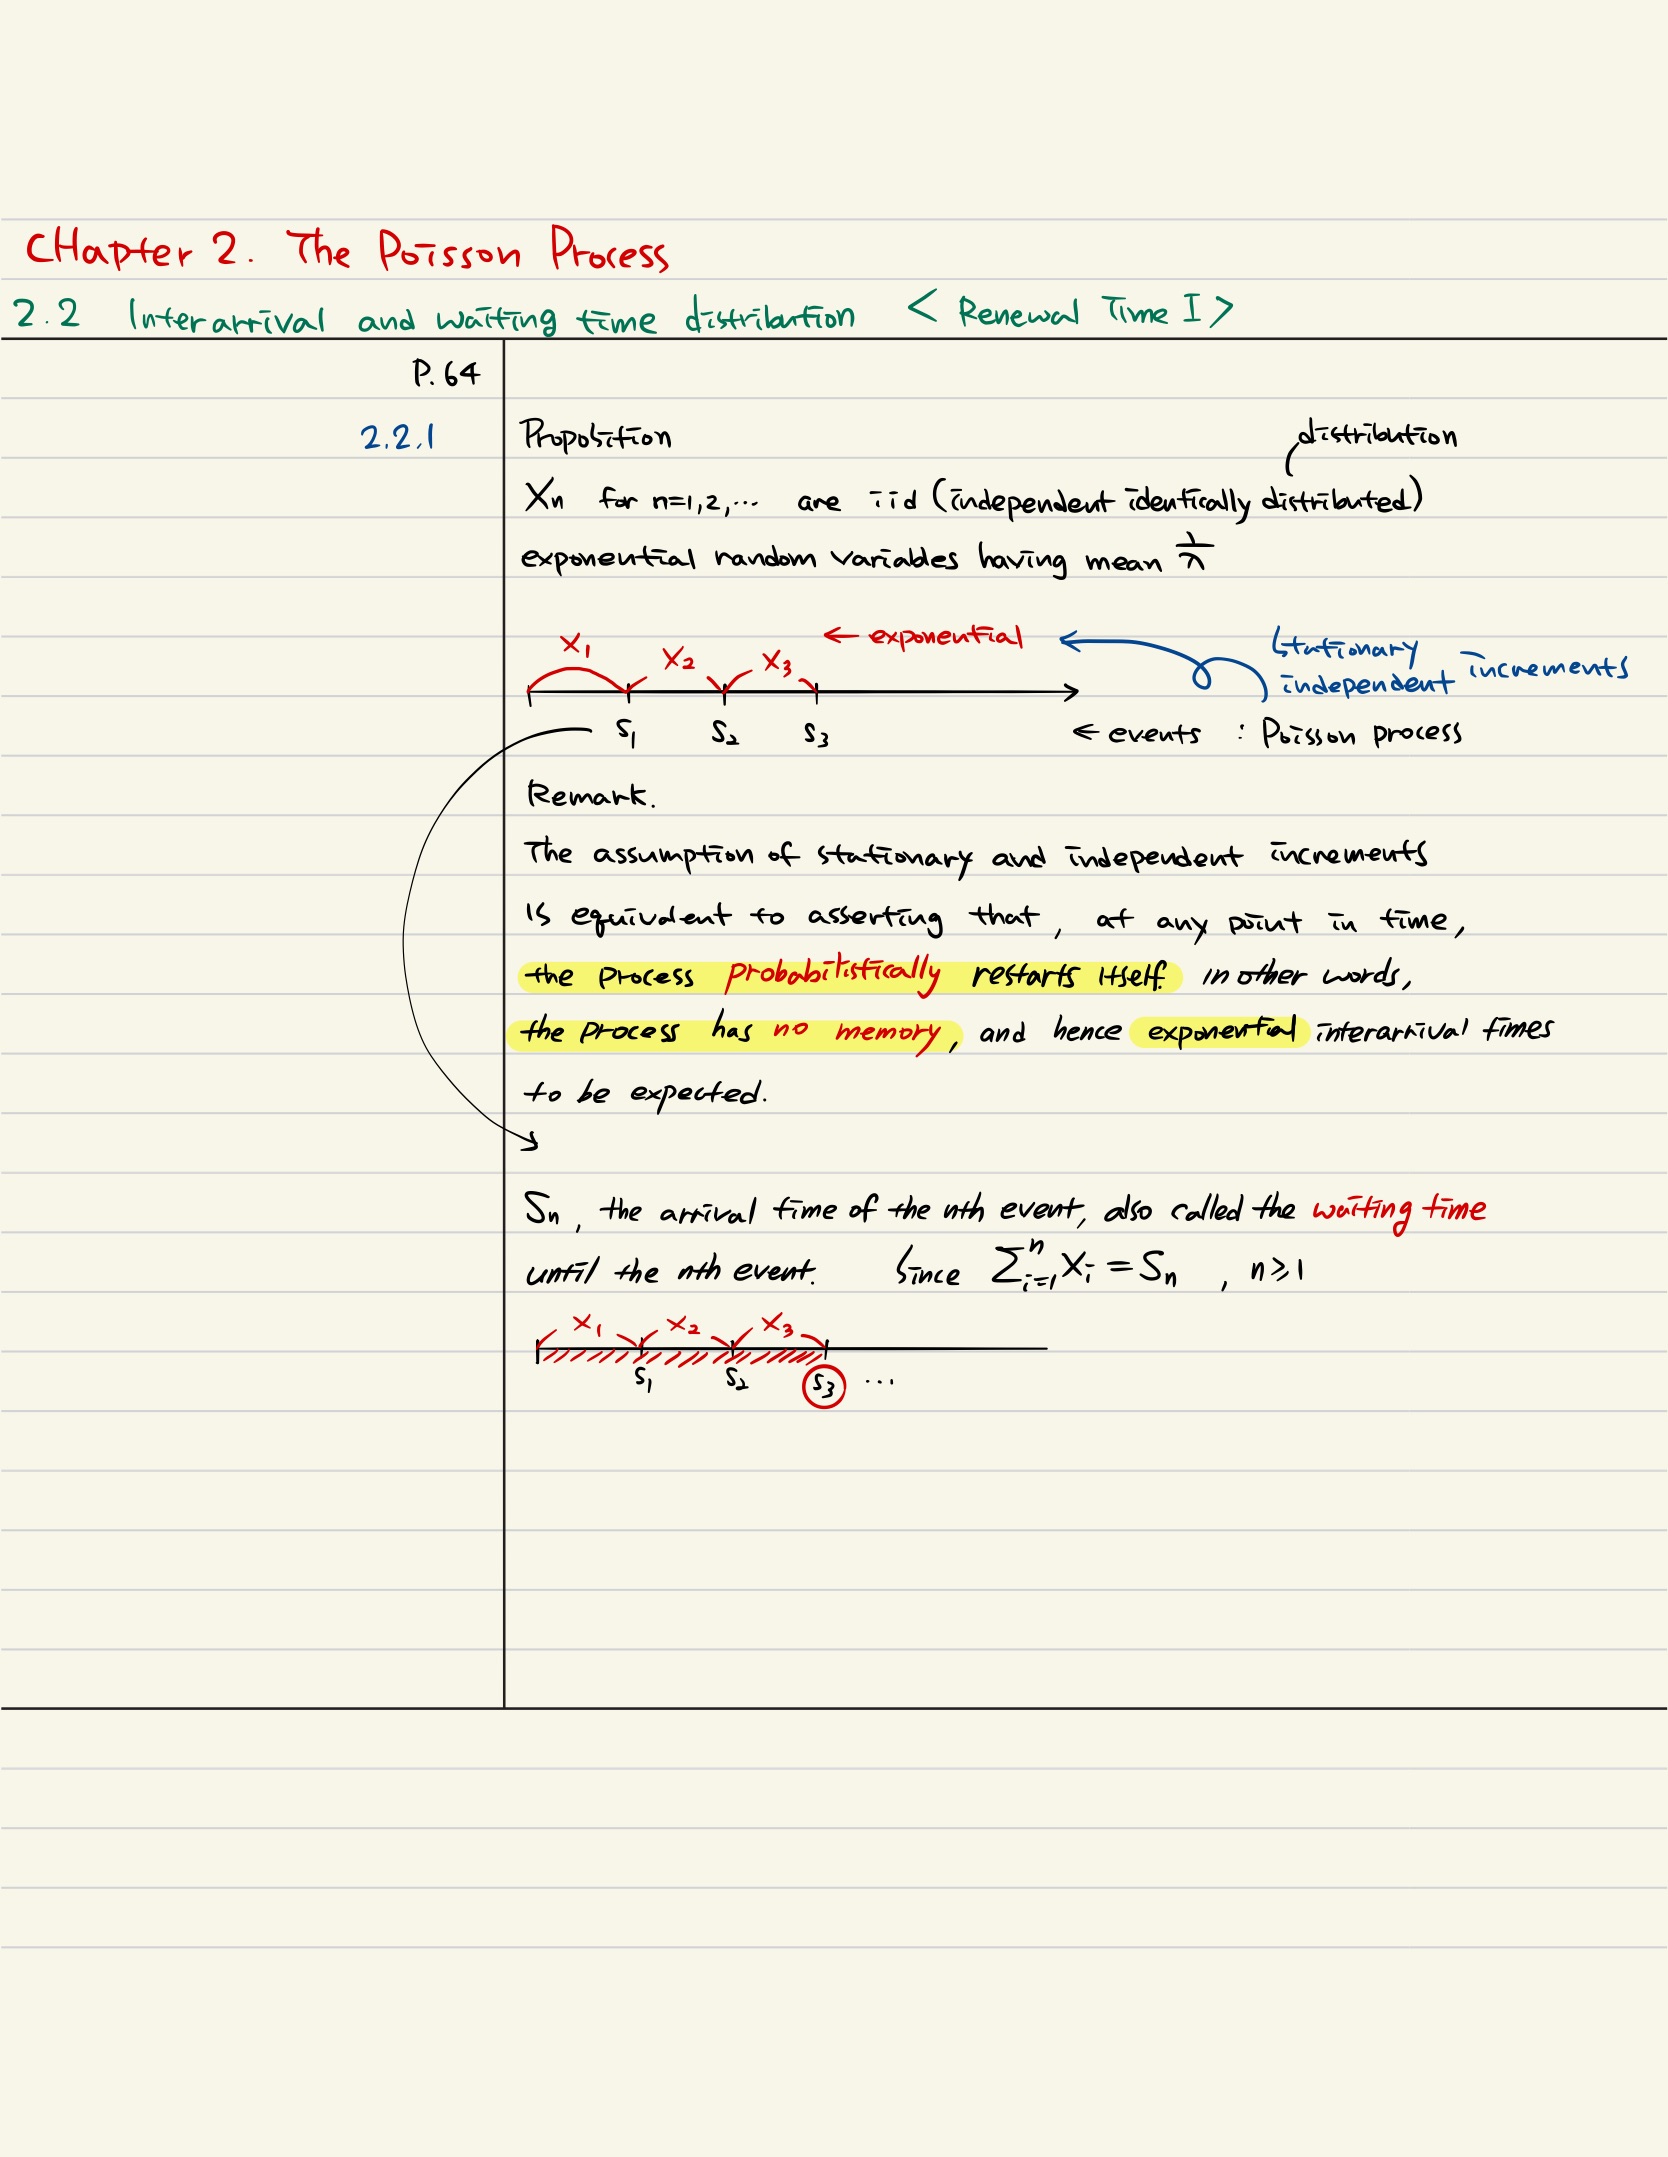 CHapter 2. The Poisson Process
2.2 Interarrival and waiting time distribution < Renewal Time I >
P.64
2.2.1 Proposition
distribution
Xn for n=1,2,... are iid (independent identically distributed)
exponential random variables having mean 1/λ
X1 X2 X3 ← exponential
stationary
independent increments
S1 S2 S3 ← events : Poisson process
Remark.
The assumption of stationary and independent increments
is equivalent to asserting that, at any point in time,
the process probabilistically restarts itself. in other words,
the process has no memory, and hence exponential interarrival times
to be expected.
Sn, the arrival time of the nth event, also called the waiting time
until the nth event. Since ∑ⁿᵢ₌₁ Xi = Sn , n≥1
X1 X2 X3
S1 S2 S3 ...